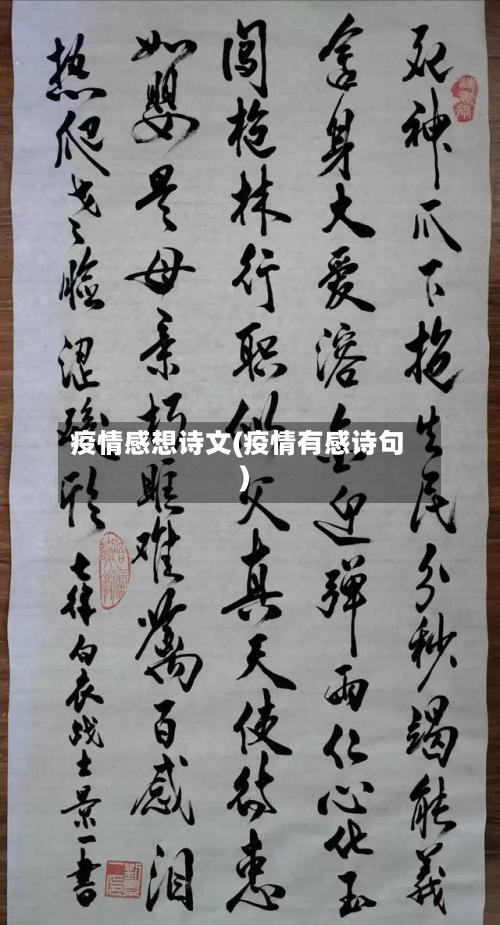 死神爪下抢生民分秒竭能义
舍身大爱溶金迎弹雨仁心化玉
闯枪林行职似父真天使待患
如婴是母亲眶难百感泪
热爬脸涩
七律白衣战士景一书
疫情感想诗文(疫情有感诗句
)